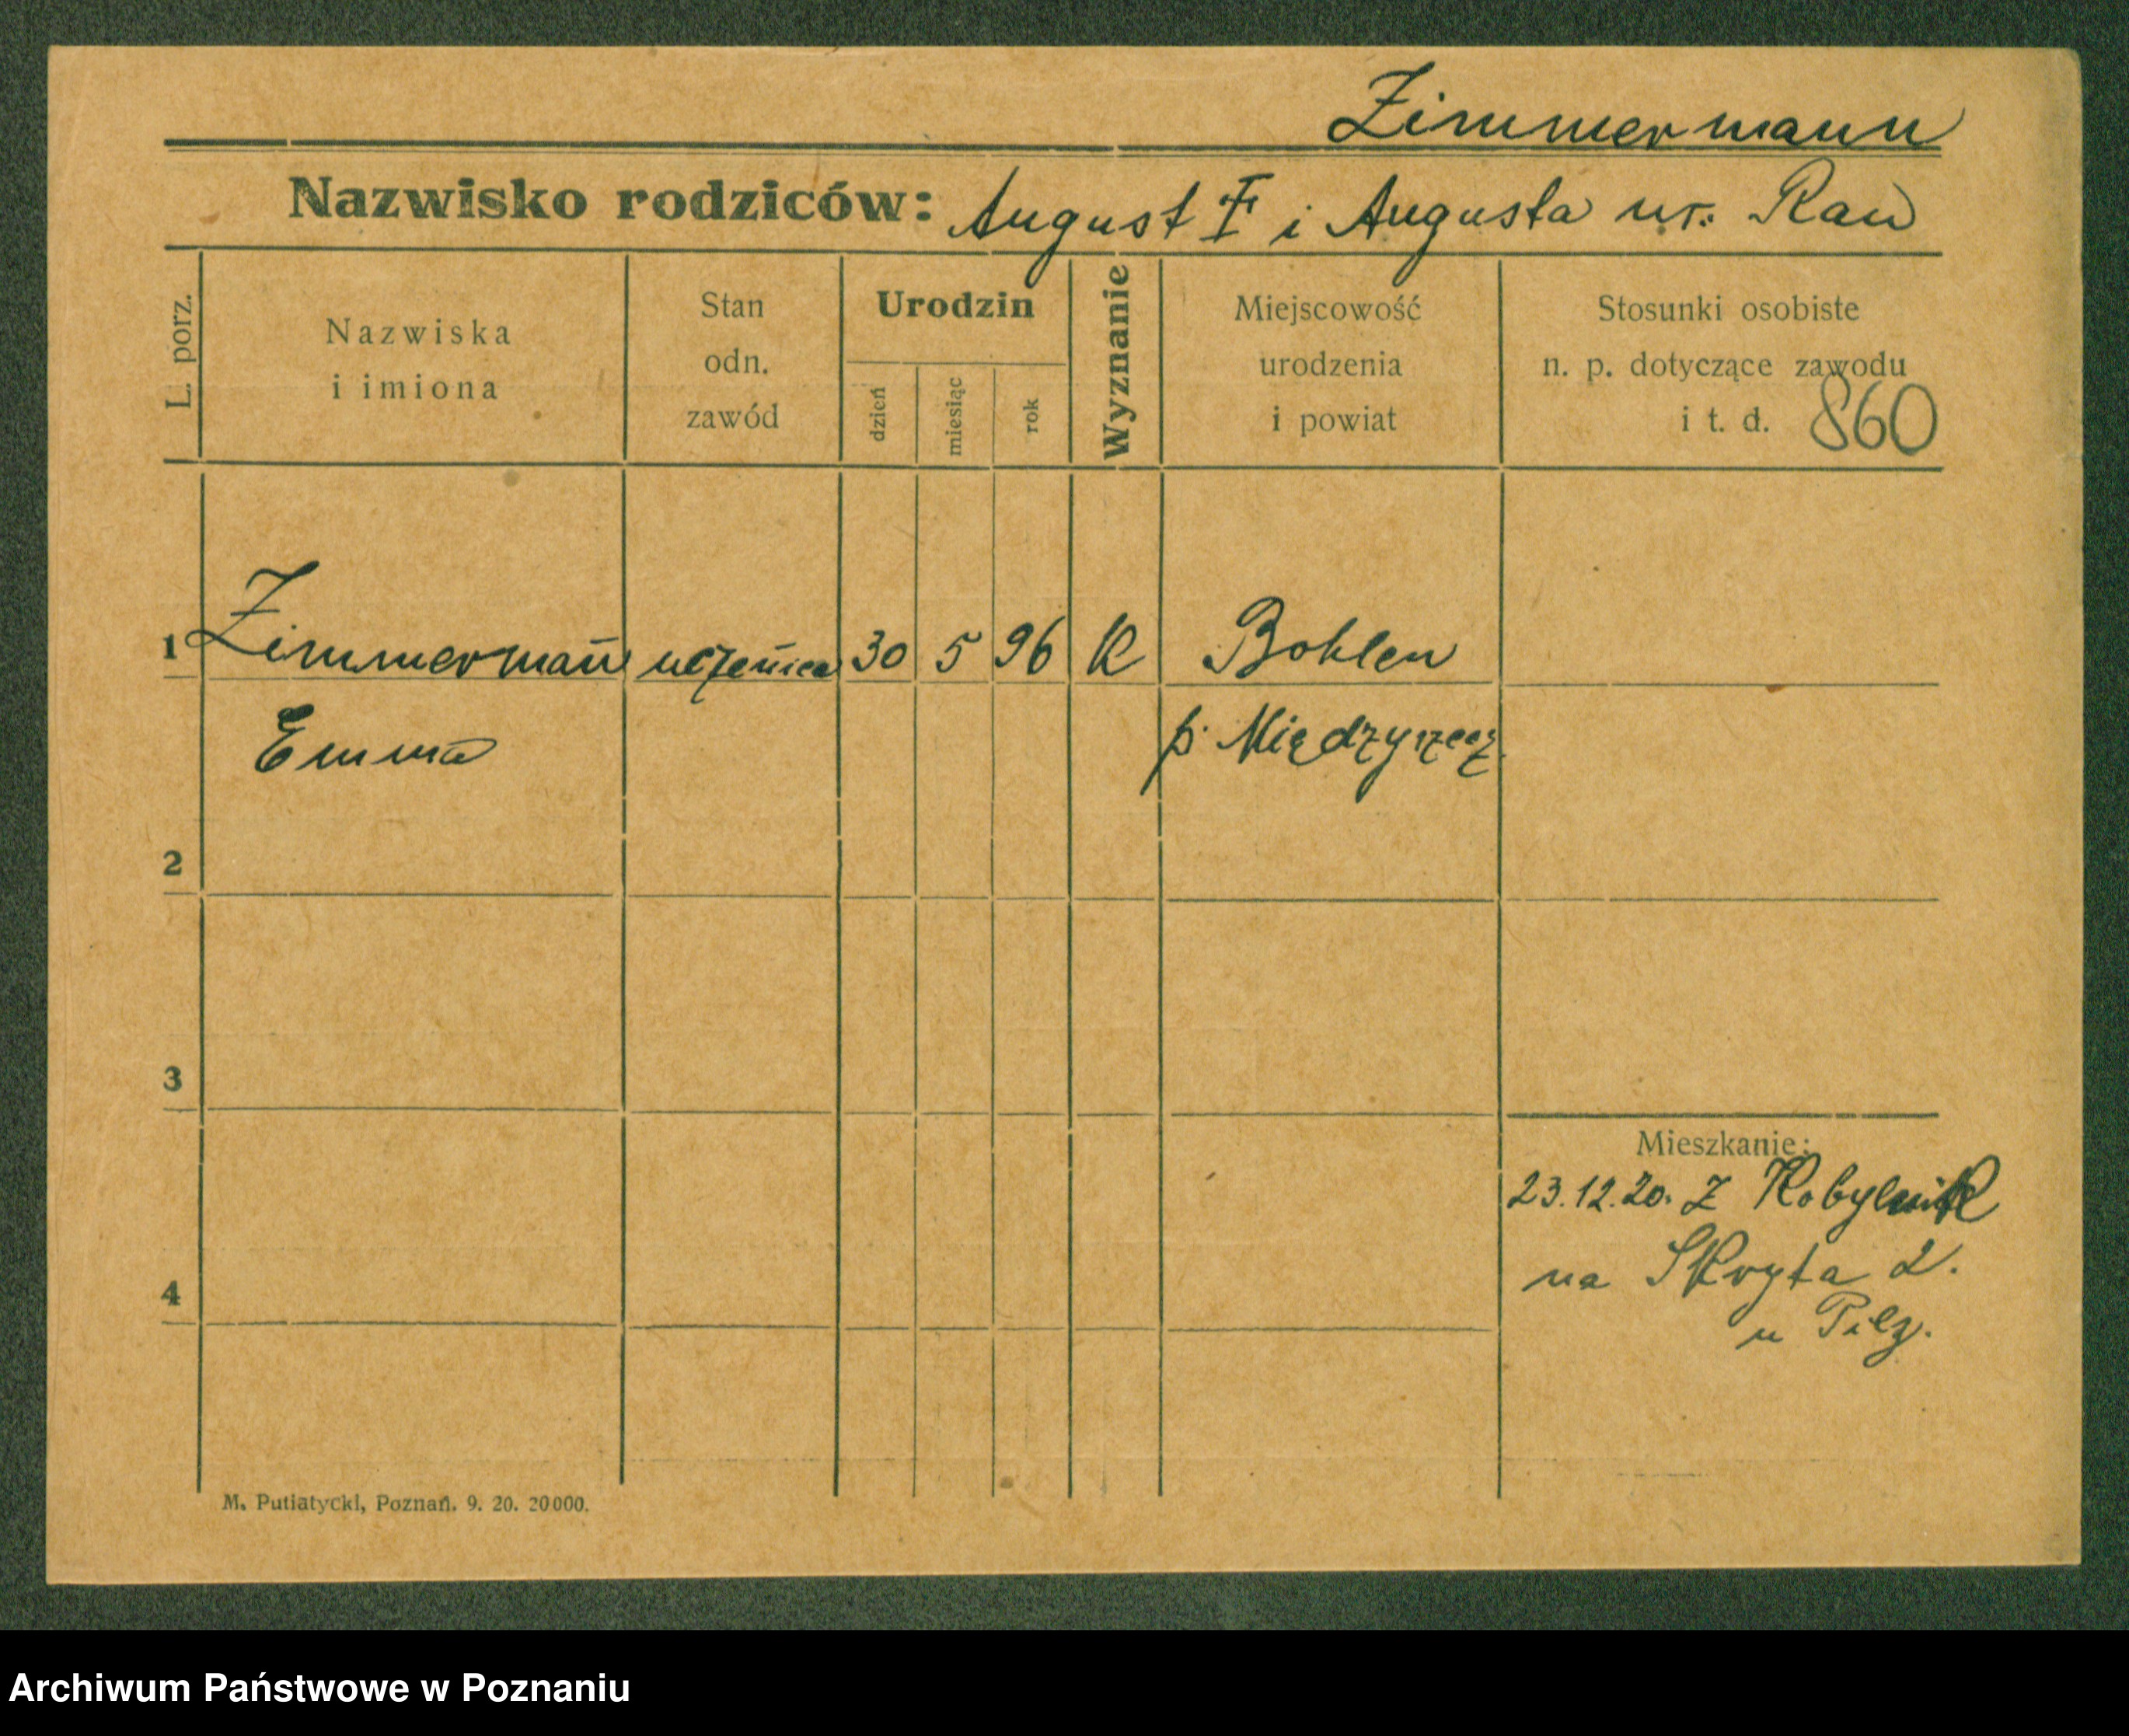 Zimmermann
Nazwisko rodziców: August † i Augusta ur. Rau
L. porz.
Nazwiska
i imiona
Stan
odn.
zawód
Urodzin
dzień
miesiąc
rok
Wyznanie
Miejscowość
urodzenia
i powiat
Stosunki osobiste
n. p. dotyczące zawodu
i t. d. 860
1 Zimmerman̄ uczenica 30 5 96 K Bohlen
Emma p. Międzyrzecz.
2
3
Mieszkanie:
23.12.20. z Kobylnik
na Skryta 2.
4
u Pilz.
M. Putiatycki, Poznań. 9. 20. 20000.
Archiwum Państwowe w Poznaniu